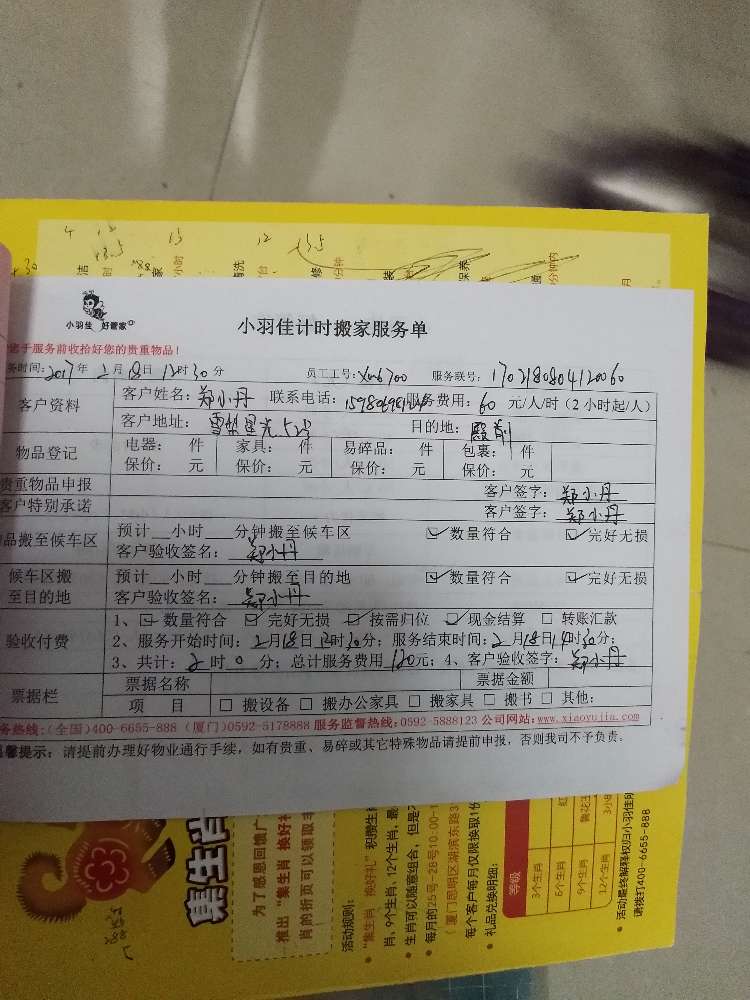 小羽佳 好管家
小羽佳计时搬家服务单
您于服务前收拾好您的贵重物品！
务时间：2017年2月18日12时30分 员工工号：Xm6700 服务联号：1702180804120060
客户资料
客户姓名：郑小丹 联系电话： 服务费用：60元/人/时（2小时起/人）
客户地址： 目的地：殿前
物品登记
电器： 件 家具： 件 易碎品： 件 包裹： 件
保价： 元 保价： 元 保价： 元 保价： 元
贵重物品申报 客户签字：郑小丹
客户特别承诺 客户签字：郑小丹
品搬至候车区
预计__小时___分钟搬至候车区 ☑数量符合 ☑完好无损
客户验收签名：郑小丹
候车区搬至目的地
预计__小时___分钟搬至目的地 ☑数量符合 ☑完好无损
客户验收签名：郑小丹
验收付费
1、☑数量符合 ☑完好无损 ☑按需归位 ☑现金结算 □转账汇款
2、服务开始时间：2月18日12时30分；服务结束时间：2月18日14时30分；
3、共计：2时0分；总计服务费用120元；4、客户验收签字：郑小丹
票据栏
票据名称 票据金额
项 目 □搬设备 □搬办公家具 □搬家具 □搬书 □其他：
务热线：(全国)400-6655-888 (厦门)0592-5178888 服务监督热线：0592-5888123 公司网站：www.xiaoyujia.com
温馨提示：请提前办理好物业通行手续，如有贵重、易碎或其它特殊物品请提前申报，否则我司不予负责。
集生肖
为了感恩回馈广
推出“集生肖 换好礼
肖的折页可以领取丰
活动规则：
“集生肖 换好礼”积攒生肖
肖、9个生肖、12个生肖，最
生肖可以随意组合，但是不
每月的25号-28号10:00-1
（厦门思明区湖滨东路3
每个客户每月仅限换取1份
礼品兑换明细：
等级
3个生肖
6个生肖
9个生肖
12个生肖
活动最终解释权归小羽佳所
请拨打400-6655-888